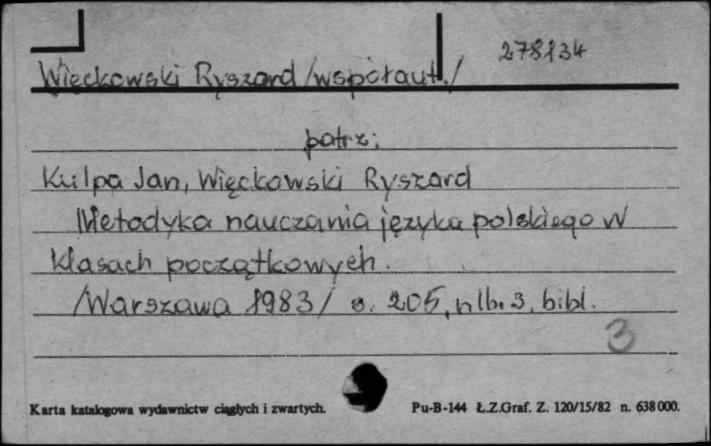 278134
Więckowski Ryszard /współaut./
patrz:
Kulpa Jan, Więckowski Ryszard
Metodyka nauczania języka polskiego w
klasach początkowych.
/Warszawa 1983/ s. 205, nlb. 3, bibl.
3
Karta katalogowa wydawnictw ciągłych i zwartych. Pu-B-144 Ł.Z.Graf. Z. 120/15/82 n. 638 000.